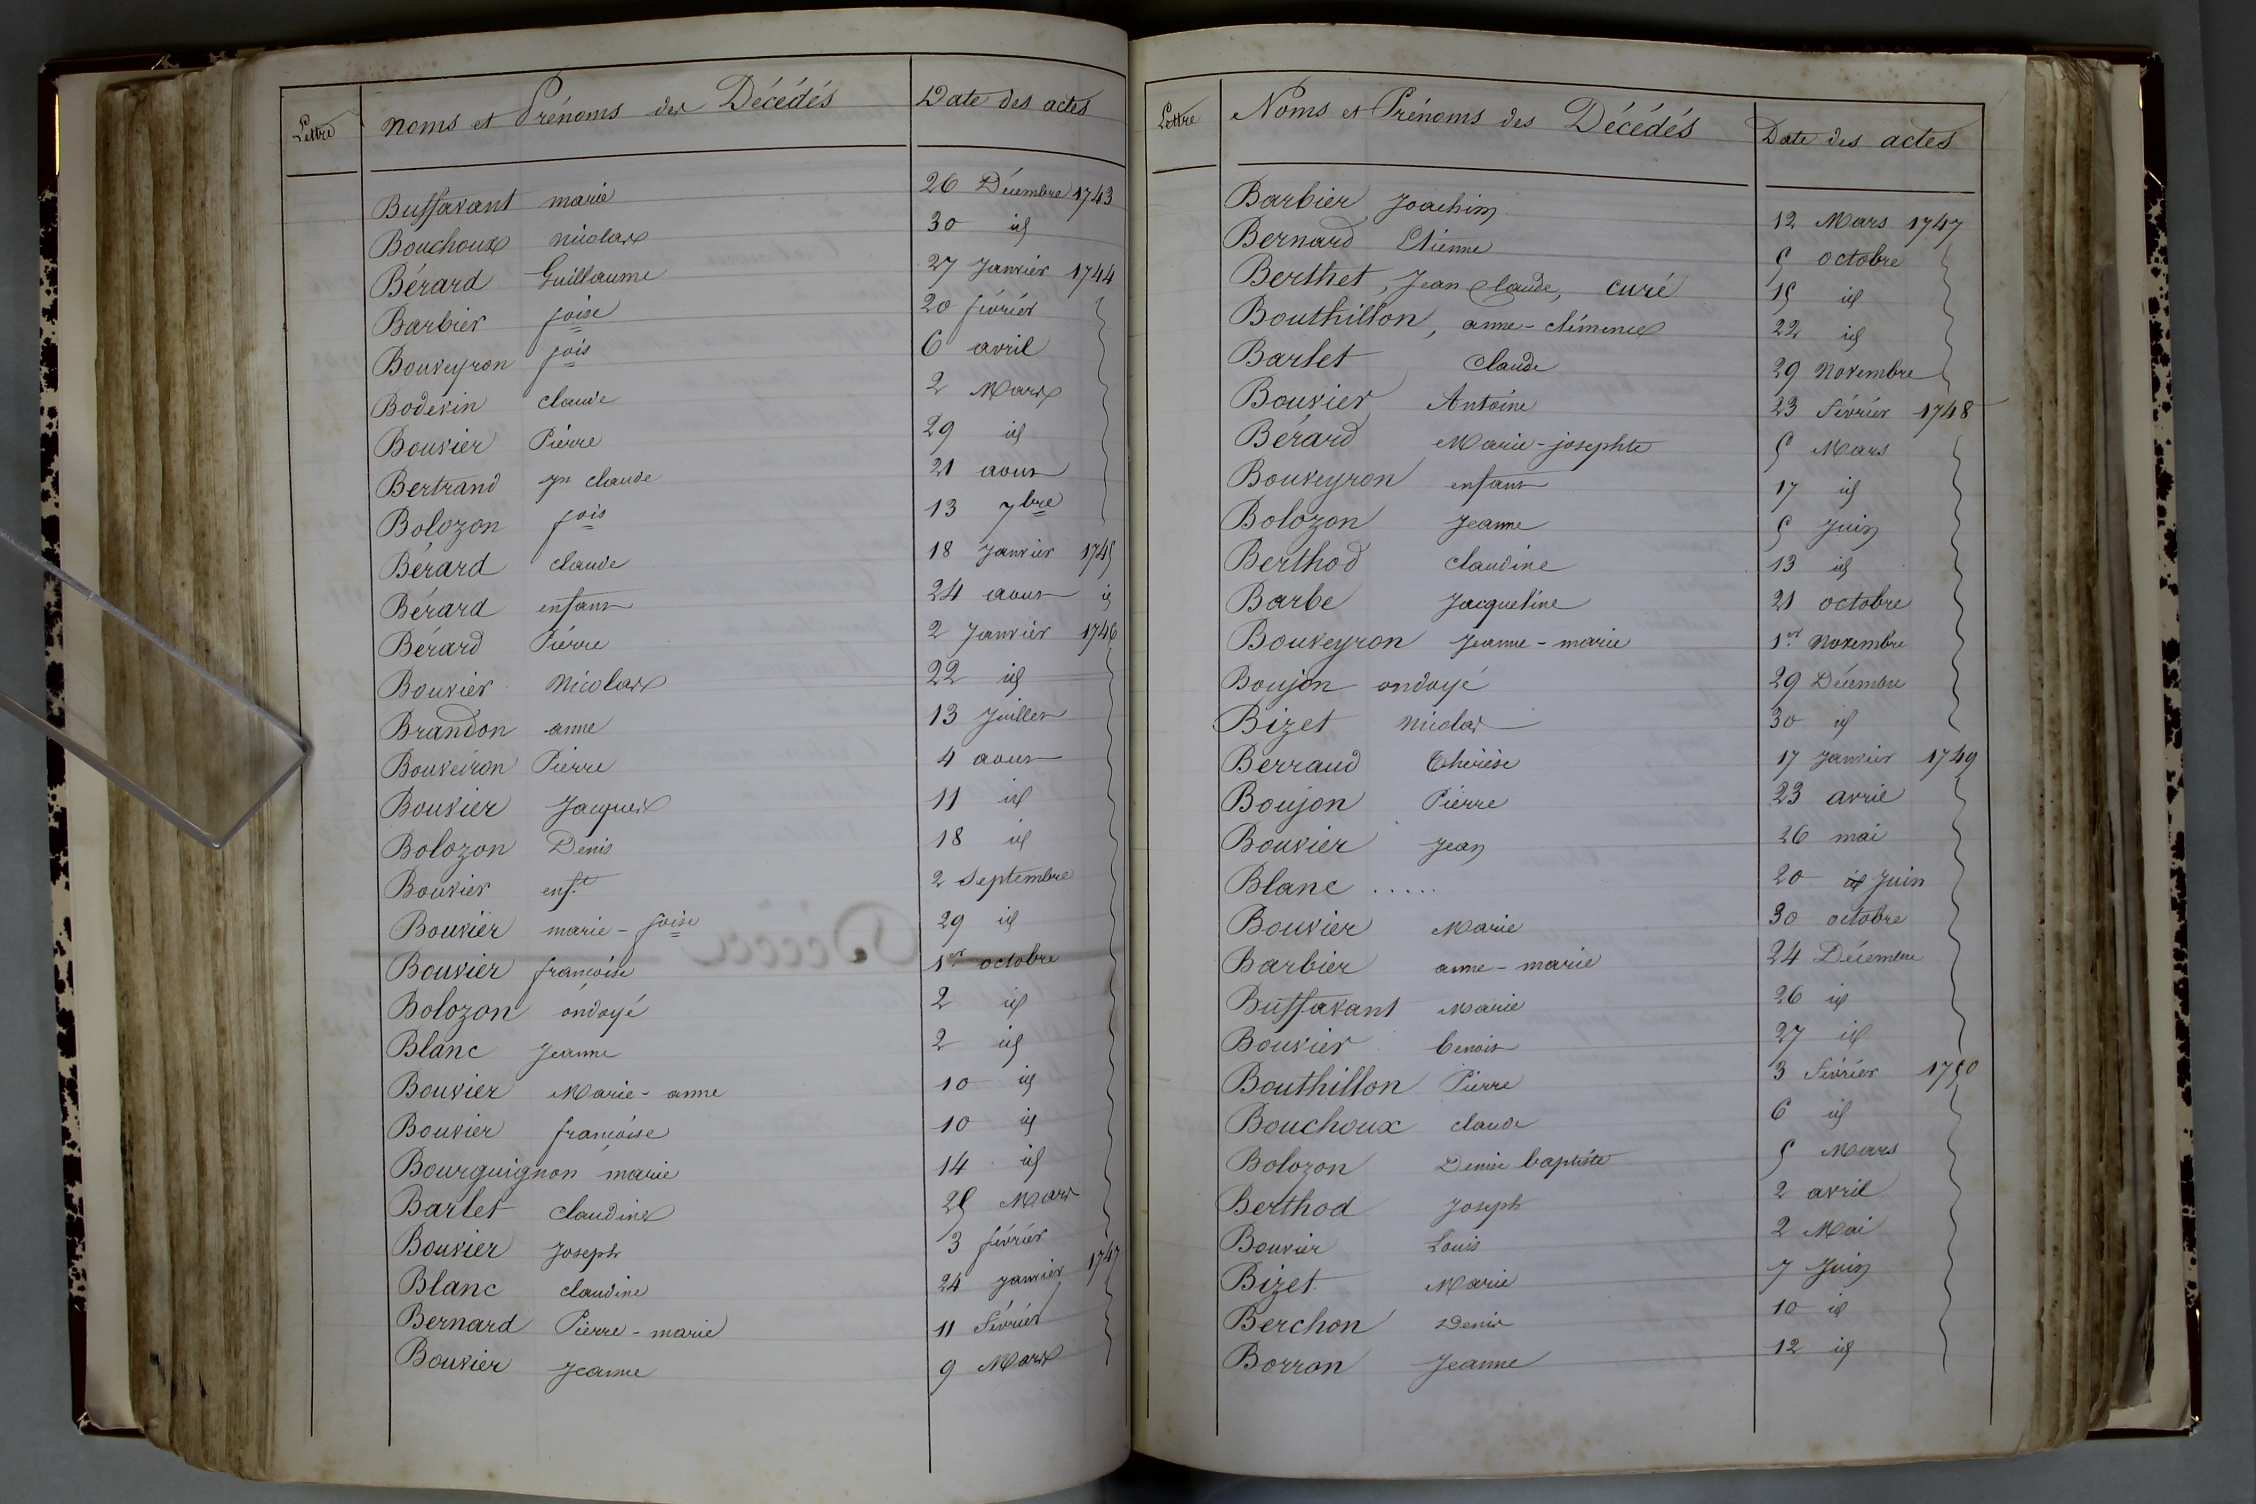 Lettre noms et Prénoms des Décédés Date des actes
Buffavant marie 26 Décembre 1743
Bouchoux nicolas 30 id
Bérard Guillaume 27 Janvier 1744
Barbier foise 20 février
Bouveyron fois 6 avril
Bodevin claude 2 Mars
Bouvier Pierre 29 id
Bertrand jn claude 21 aout
Bolozon fois 13 7bre
Bérard claude 18 Janvier 1745
Bérard enfant 24 aout id
Bérard Pierre 2 Janvier 1746
Bouvier Nicolas 22 id
Brandon anne 13 Juillet
Bouveiron Pierre 4 aout
Bouvier Jacques 11 id
Bolozon Denis 18 id
Bouvier enft 2 Septembre
Bouvier marie-foise 29 id
Bouvier françoise 1er octobre
Bolozon ondoyé 2 id
Blanc Jeanne 2 id
Bouvier Marie-anne 10 id
Bouvier françoise 10 id
Bourguignon marie 14 id
Barlet claudine 25 Mars
Bouvier Joseph 3 février
Blanc claudine 24 janvier 1747
Bernard Pierre-marie 11 Février
Bouvier Jeanne 9 Mars
Lettre Noms et Prénoms des Décédés Date des actes
Barbier Joachim 12 Mars 1747
Bernard Etienne 5 octobre
Berthet, Jean Claude, curé 15 id
Bouthillon, anne-clémence 22 id
Barlet Claude 29 Novembre
Bouvier Antoine 23 Février 1748
Bérard Marie-josephte 5 Mars
Bouveyron enfant 17 id
Bolozon Jeanne 5 Juin
Berthod Claudine 13 id
Barbe Jacqueline 21 octobre
Bouveyron Jeanne-marie 1er Novembre
Boujon ondoyé 29 Décembre
Bizet Nicolas 30 id
Berraud Thérèse 17 Janvier 1749
Boujon Pierre 23 avril
Bouvier Jean 26 mai
Blanc ..... 20 id Juin
Bouvier Marie 30 octobre
Barbier anne-marie 24 Décembre
Buffavant Marie 26 id
Bouvier benoit 27 id
Bouthillon Pierre 3 Février 1750
Bouchoux claude 6 id
Bolozon Denise baptiste 5 Mars
Berthod Joseph 2 avril
Bouvier Louis 2 Mai
Bizet Marie 7 Juin
Berchon Denis 10 id
Borron Jeanne 12 id